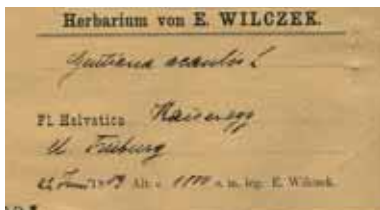 Herbarium von E. WILCZEK.
Gentiana acaulis L
Fl. Helvetica Kaiseregg
Freiburg
Juni 19 Alt. c. s. m. leg. E. Wilczek.